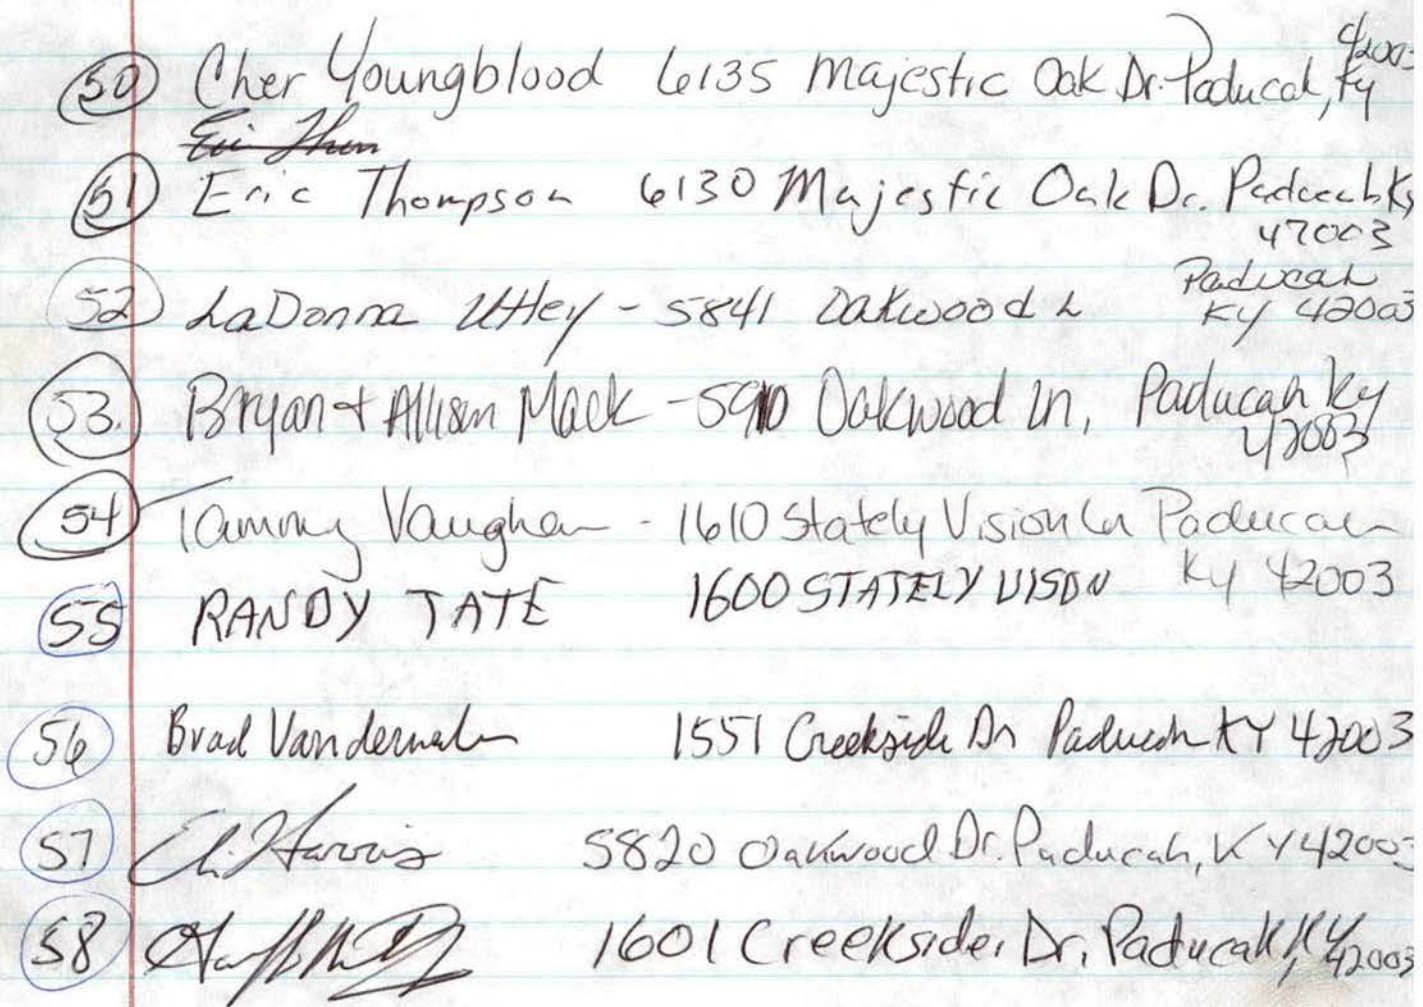 50 Cher Youngblood 6135 Majestic Oak Dr. Paducah, Ky 42003
51 Eric Thompson 6130 Majestic Oak Dr. Paducah Ky
42003
52 LaDonna Utley - 5841 Oakwood L Paducah
KY 42003
53. Bryan + Allison Mack - 5910 Oakwood Ln, Paducah Ky
42003
54 Tammy Vaughan - 1610 Stately Vision Ln Paducah
Ky 42003
55 RANDY TATE 1600 STATELY VISON
56 Brad 1551 Creekside Dr Paducah KY 42003
57 Harris 5820 Oakwood Dr. Paducah, KY 42003
58 1601 Creekside Dr. Paducah, KY 42003